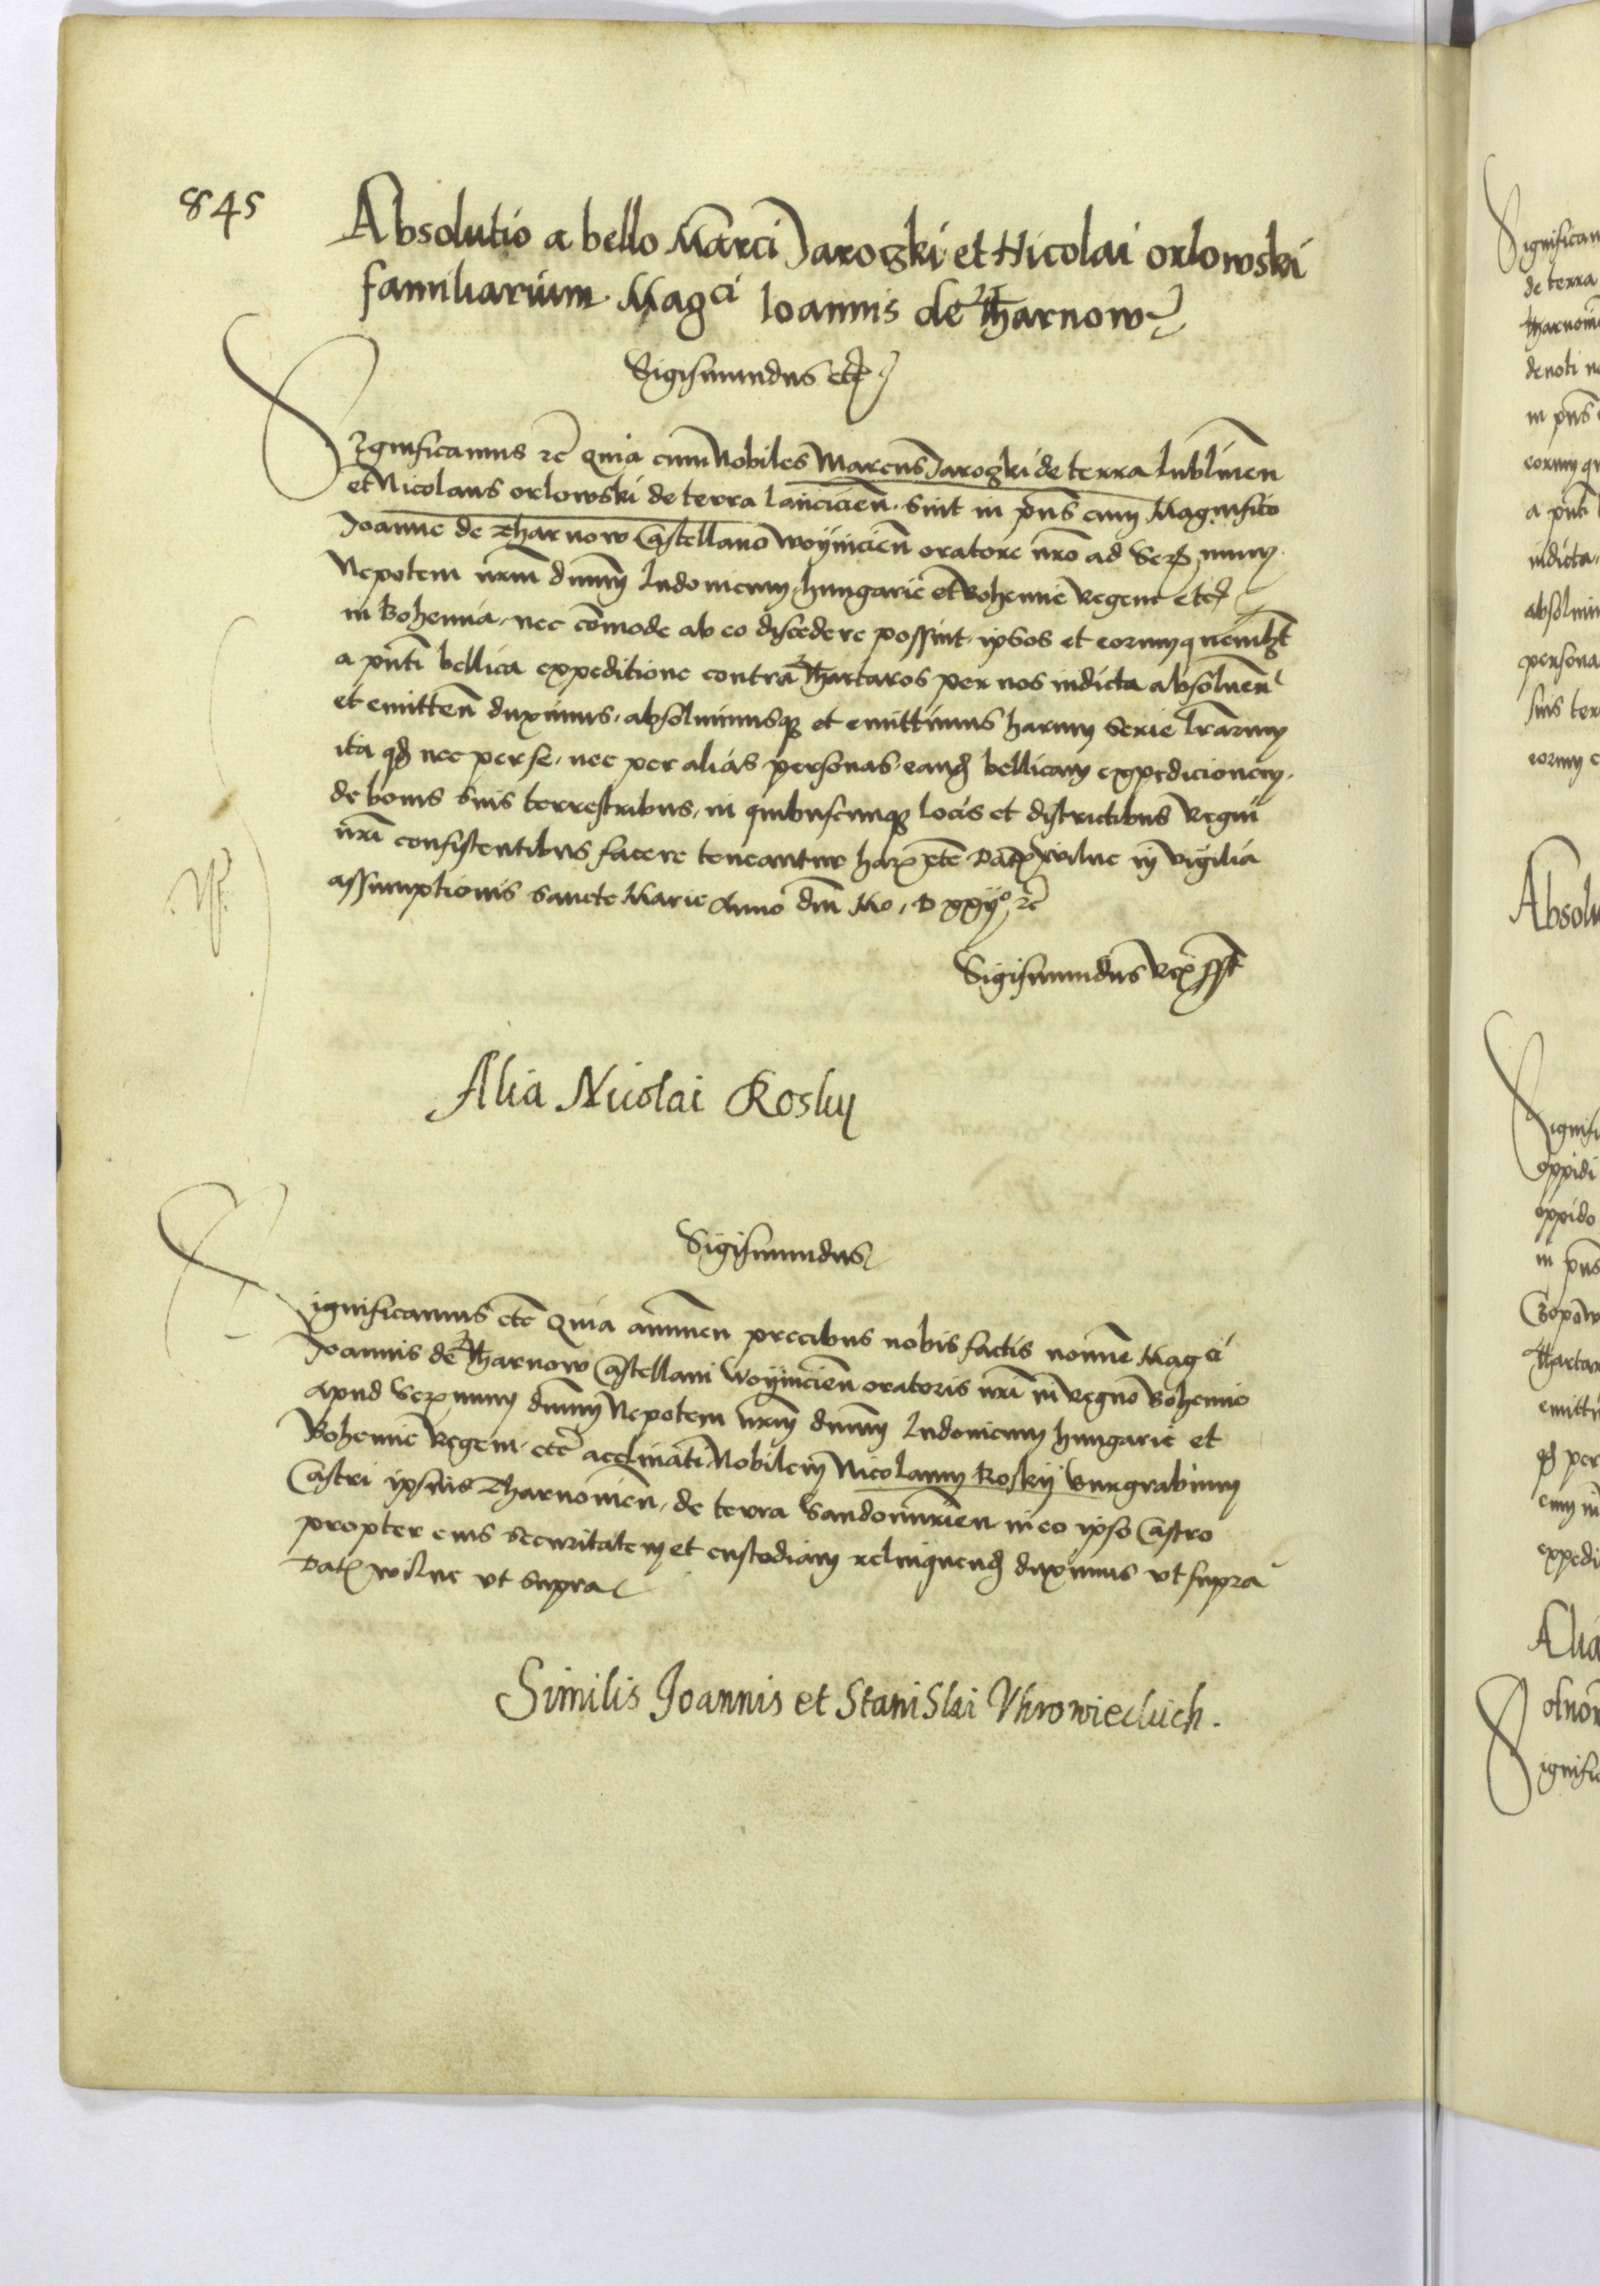 845
Absolutio a bello Marci Jarogski et Nicolai orlowski
familiarium Magci Ioannis de Tharnow
Sigismundus etc
Significamus etc Quia cum Nobiles Marcus Jarogski de terra lublinen
et Nicolaus orlowski de terra lancicien sint in pns cum Magnifico
Joanne de Tharnow Castellano woyniicien oratore nro ad Ser mum
Nepotem nrm dnum ludouicum hungarie et Bohemie Regem etc
in Bohemia nec comode ab eo discedere possint ipsos et eorum quemlibet
a pnti bellica expeditione contra Thartaros per nos indicta absoluen
et emitten duximus absoluimusq et emittimus harum serie lrarum
ita qd nec per se nec per alias personas eand bellicam expedicionem
de bonis suis terrestribus in quibuscunq locis et districtibus Regni
nri consistentibus facere teneantur har etc Dat wilne in vigilia
assumptionis Sancte Marie Anno dni Mo D xxijo etc
Sigismundus Rex sst
Alia Nicolai Rosky
Sigismundus
Significamus etc Quia annuen precibus nobis factis nomine Magci
Joannis de Tharnow Castellani woyniicien oratoris nri in Regno Bohemie
apud Ser mum dnum Nepotem nrm dnum ludouicum hungarie et
Bohemie Regem etc acclinati Nobilem Nicolaum Roskij burgrabium
Castri ipsius Tharnowien de terra Sandomirien in eo ipso Castro
propter eius securitatem et custodiam relinquend duximus vt supra
Dat wilne vt supra
Similis Joannis et Stanislai Vhrowieckich.
Significam
de terra
tharnow
denoti
in pns
a pnti
indicta
absolui
persona
suis ter
Absolu
Signifi
oppidi
oppido
in pns
Thartar
emitti
qd per
expedi
Alia
Signific